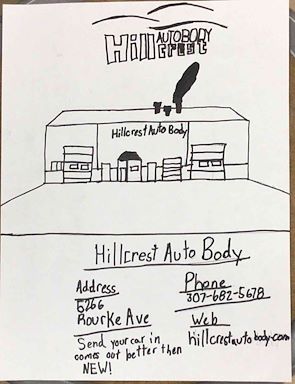 Hillcrest AUTOBODY
Hillcrest Auto Body
Hillcrest Auto Body
Address
6266
Rourke Ave
Phone
307-682-5678
Web
hillcrestautobody.com
Send your car in
comes out better then
NEW!